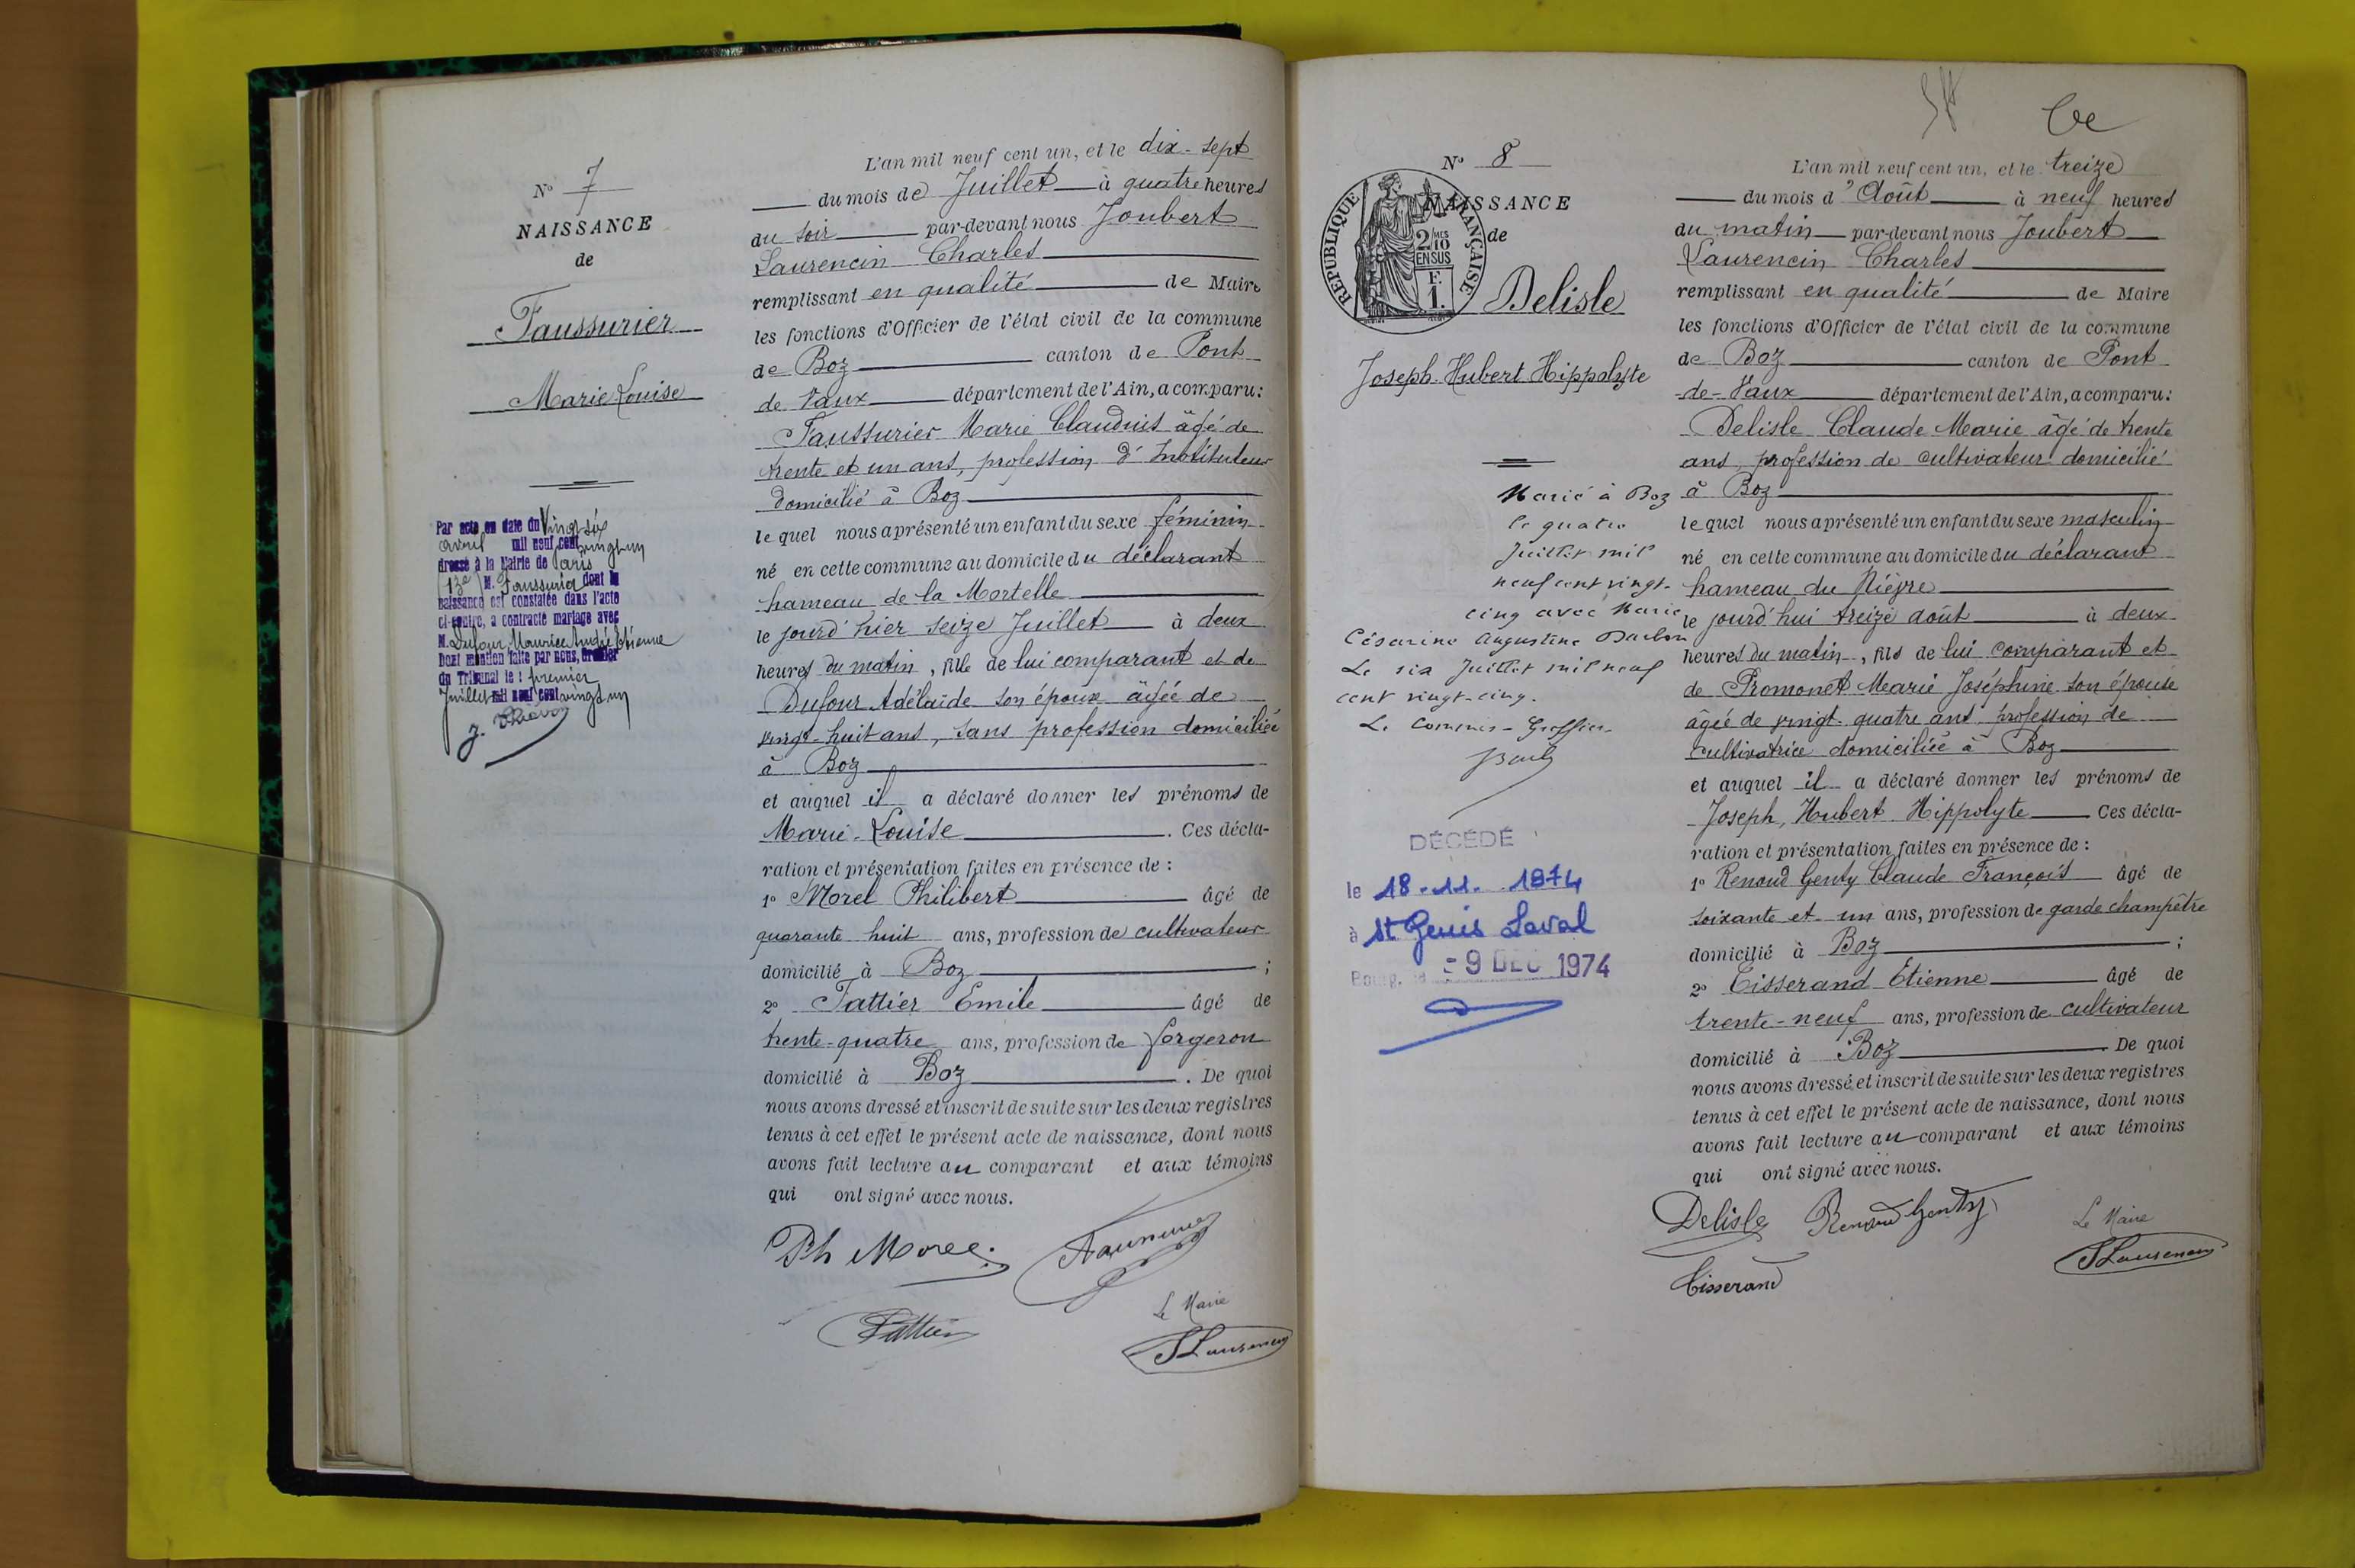 N° 7
NAISSANCE
de
Faussurier
Marie Louise
Par acte en date du Vingt-six
avril mil neuf cent vingt un
dressé à la Mairie de Paris
(13e) M. Faussurier dont la
naissance est constatée dans l'acte
ci-contre, a contracté mariage avec
M. Dufour, Maurice André Étienne
Dont mention faite par nous, Greffier
du Tribunal le : premier
Juillet mil neuf cent vingt un
L'an mil neuf cent un, et le dix-sept
du mois de Juillet à quatre heures
du soir par-devant nous Joubert
Laurencin Charles
remplissant en qualité de Maire
les fonctions d'Officier de l'état civil de la commune
de Boz canton de Pont
de Vaux département de l'Ain, a comparu:
Faussurier Marie Claudius âgé de
trente et un ans, profession d'Instituteur
domicilié à Boz
le quel nous a présenté un enfant du sexe féminin
né en cette commune au domicile du déclarant
hameau de la Mortelle
le jourd'hier seize Juillet à deux
heures du matin, fille de lui comparant et de
Dufour Adélaïde son épouse âgée de
vingt-huit ans, sans profession domiciliée
à Boz
et auquel il a déclaré donner les prénoms de
Marie-Louise. Ces décla-
ration et présentation faites en présence de :
1° Morel Philibert âgé de
quarante huit ans, profession de cultivateur
domicilié à Boz ;
2° Tattier Emile âgé de
trente-quatre ans, profession de forgeron
domicilié à Boz. De quoi
nous avons dressé et inscrit de suite sur les deux registres
tenus à cet effet le présent acte de naissance, dont nous
avons fait lecture au comparant et aux témoins
qui ont signé avec nous.
Ph Morel
Faussurier
Tattier
Le Maire
JLaurencin
N° 8
NAISSANCE
de
RÉPUBLIQUE FRANÇAISE
2/10 MES
EN SUS
F.
1.
Delisle
Joseph Hubert Hippolyte
Marié à Boz
le quatre
Juillet mil
neuf cent vingt-
cinq avec Marie
Césarine Augustine
Le six Juillet mil neuf
cent vingt-cinq.
Le Commis-Greffier
DÉCÉDÉ
le 18.11.1974
à St Genis Laval
Bourg, le - 9 DEC 1974
L'an mil neuf cent un, et le treize
du mois d'Août à neuf heures
du matin par-devant nous Joubert
Laurencin Charles
remplissant en qualité de Maire
les fonctions d'Officier de l'état civil de la commune
de Boz canton de Pont
-de-Vaux département de l'Ain, a comparu:
Delisle Claude Marie âgé de trente
ans, profession de cultivateur domicilié
à Boz
le quel nous a présenté un enfant du sexe masculin
né en cette commune au domicile du déclarant
hameau du
le jourd'hui treize août à deux
heures du matin, fils de lui comparant et
de Promonet Marie Joséphine son épouse
âgée de vingt-quatre ans, profession de
cultivatrice domiciliée à Boz
et auquel il a déclaré donner les prénoms de
Joseph, Hubert Hippolyte Ces décla-
ration et présentation faites en présence de :
1° Renoud Genty Claude François âgé de
soixante et un ans, profession de garde champêtre
domicilié à Boz ;
2° Tisserand Étienne âgé de
trente-neuf ans, profession de cultivateur
domicilié à Boz De quoi
nous avons dressé et inscrit de suite sur les deux registres
tenus à cet effet le présent acte de naissance, dont nous
avons fait lecture au comparant et aux témoins
qui ont signé avec nous.
Delisle Renoud Genty
Le Maire
JLaurencin
Tisserand